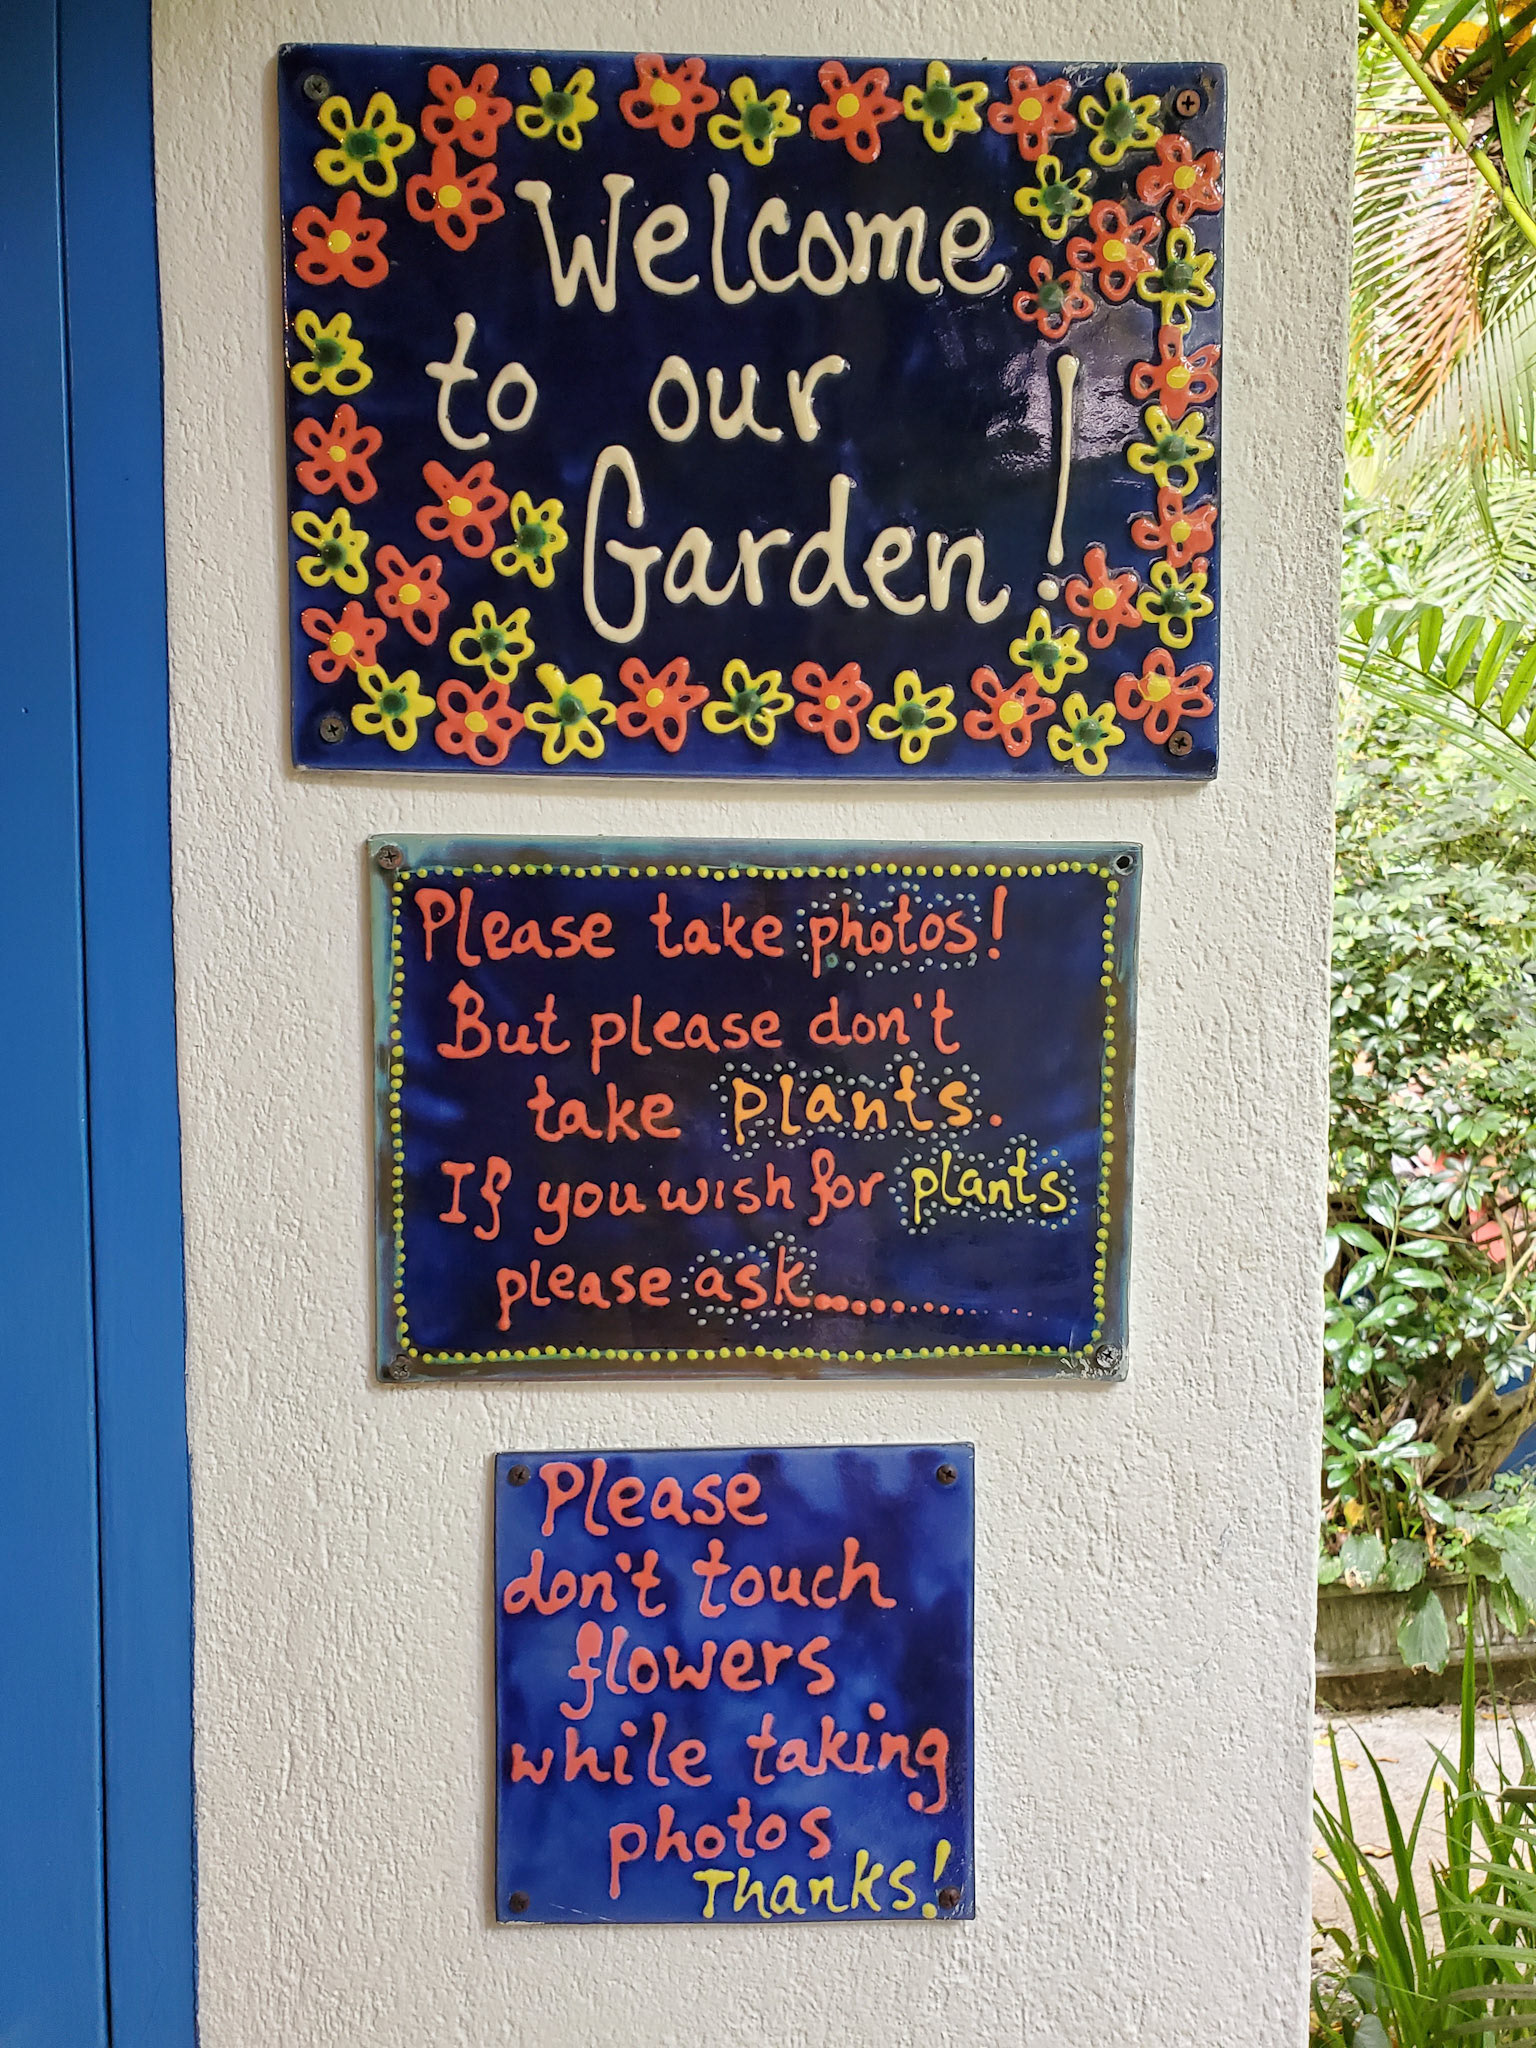 Welcome
to our
Garden!
Please take photos!
But please don't
take plants.
If you wish for plants
please ask..............
Please
don't touch
flowers
while taking
photos
Thanks!